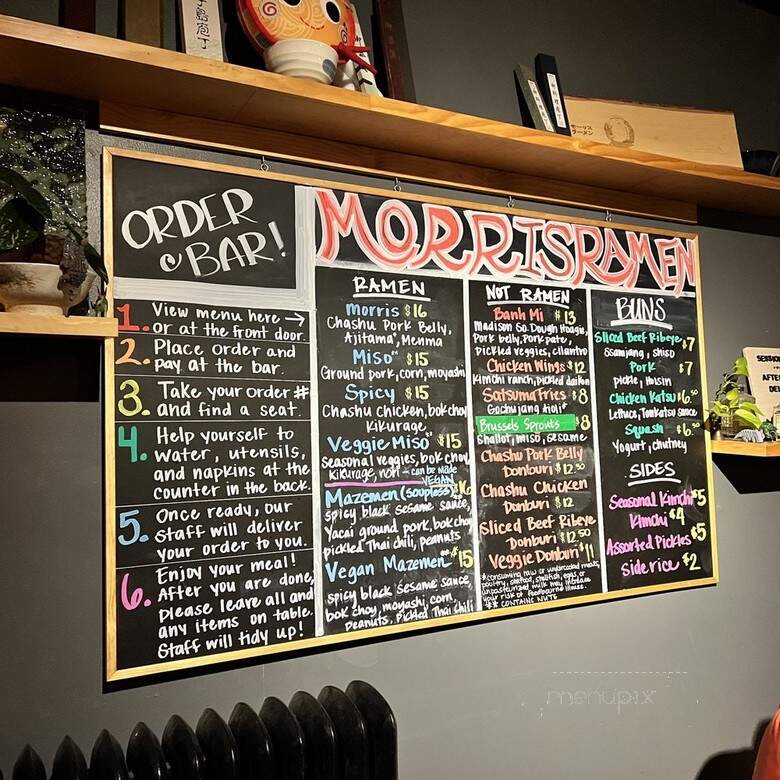 ORDER
@ BAR!
1. View menu here →
or at the front door.
2. Place order and
pay at the bar.
3. Take your order #
and find a seat.
4. Help yourself to
water, utensils,
and napkins at the
counter in the back.
5. Once ready, our
staff will deliver
your order to you.
6. Enjoy your meal!
After you are done,
please leave all and
any items on table.
Staff will tidy up!
MORRISRAMEN
RAMEN
Morris $16
Chashu Pork Belly,
Ajitama*, Menma
Miso** $15
Ground pork, corn, moyashi
Spicy $15
Chashu chicken, bok choy
Kikurage
Veggie Miso** $15
Seasonal veggies, bok choy
Kikurage, nori - can be made
VEGAN
Mazemen (soupless)** $16
spicy black sesame sauce,
Yacai ground pork, bok choy
pickled Thai chili, peanuts
Vegan Mazemen** $15
spicy black sesame sauce
bok choy, moyashi, corn,
Peanuts, Pickled Thai Chili
NOT RAMEN
Banh Mi $13
Madison So. Dough Hoagie,
Pork belly, Pork pate,
pickled veggies, cilantro
Chicken Wings $12
Kimchi ranch, pickled daikon
Satsuma Fries $8
Gochujang aioli*
Brussels Sprouts $8
Shallot, miso, sesame
Chashu Pork Belly
Donburi $12.50
Chashu Chicken
Donburi $12
Sliced Beef Ribeye
Donburi $12.50
Veggie Donburi $11
*consuming raw or undercooked meats,
poultry, seafood, shellfish, eggs, or
unpasteurized milk may increase
your risk of foodbourne illness.
** CONTAINS NUTS
BUNS
Sliced Beef Ribeye $7
Ssamjang, shiso
Pork $7
pickle, Hoisin
Chicken Katsu $6.50
Lettuce, Tonkatsu sauce
Squash $6.50
Yogurt, chutney
SIDES
Seasonal Kimchi $5
Kimchi $4
Assorted Pickles $5
Side rice $2
menupix